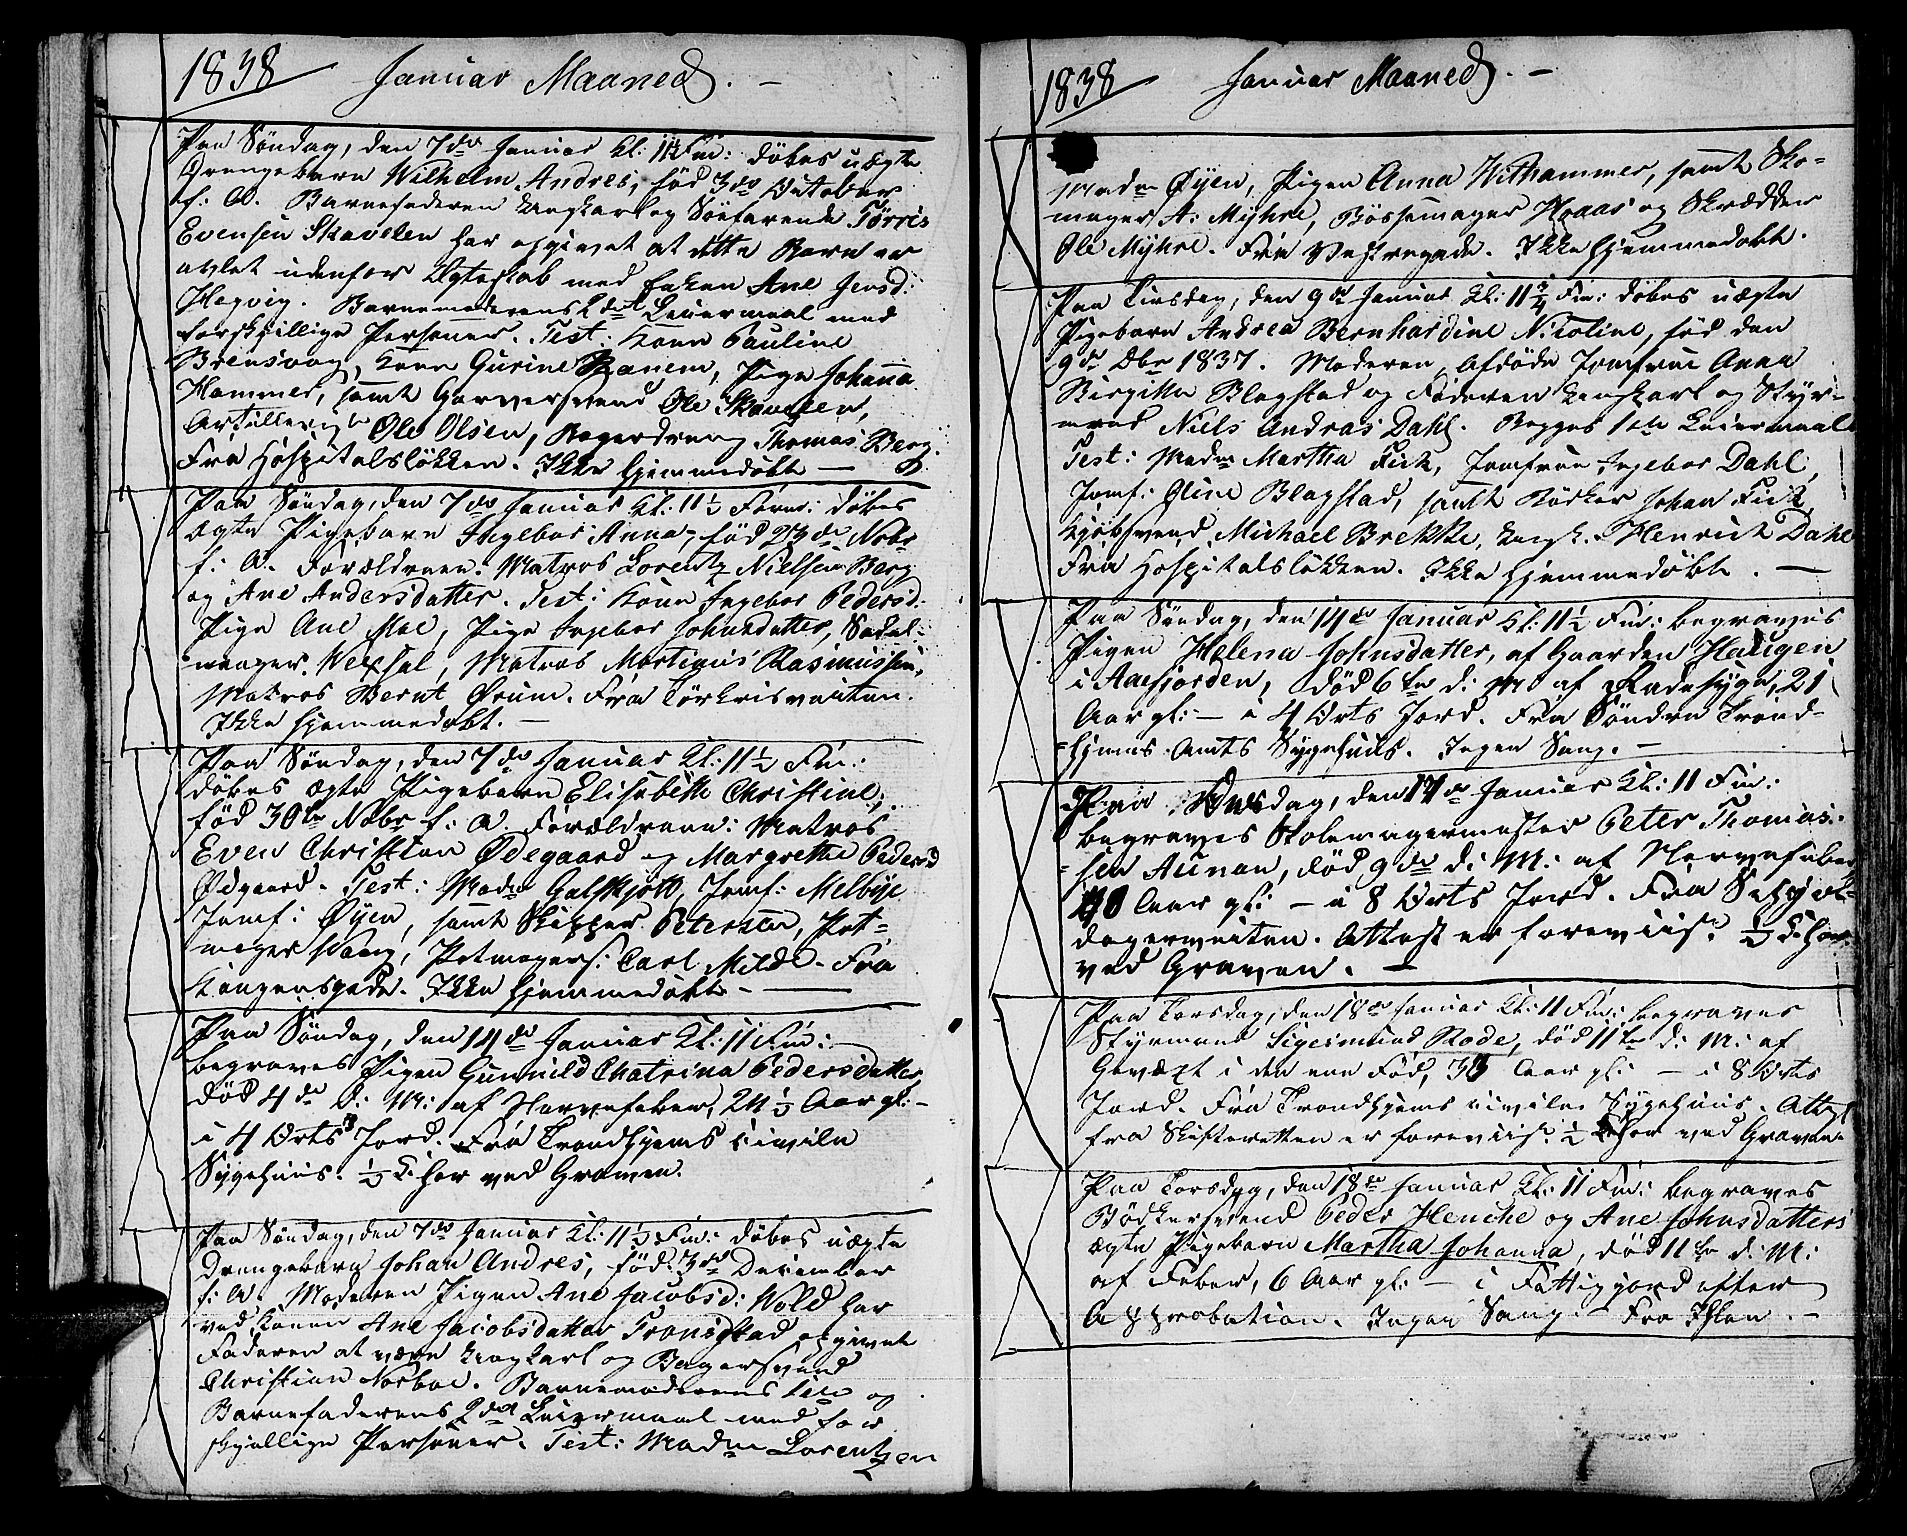 1838 Januar Maaned. –
Paa Søndag, den 7de Januar Kl: 11½ Fm: døbes uægte
Drengebarn Wilhelm Andres, fød 3de October
f: A. Barnefaderen Ungkarl og Søefarende Tørris
Evensen Skavelen har opgivet at dette Barn er
avlet udenfor Ægteskab med Enken Ane Jensd:
Hegvig. Barnemoderens 2det Leiermaal med
forskjellige Personer. Test: Kone Pauline
Brensvog, Kone Gurine Ranem, Pige Johanna
Hammer, samt Garversvend Ole Skavelen,
Ole Olsen, Bagerdreng Thomas Berg.
Fra Hospitalsløkken. Ikke hjemmedøbt —
Paa Søndag, den 7de Januar Kl: 11½ Form: døbes
ægte Pigebarn Ingebor Anna, fød 23de Nobr
f: A. Forældrene: Matros Lorentz Nielsen Berg
og Ane Andersdatter. Test: Kone Ingebor Pedersd:
Pige Ane Moe, Pige Ingebor Johnsdatter, Sadel-
mager Wexsal, Matros Martinus Rasmussen,
Matros Bernt Ørum. Fra Tørkrisveiten.
Ikke hjemmedøbt. —
Paa Søndag, den 7de Januar Kl: 11½ Fm:
døbes ægte Pigebarn Elisabeth Christine,
fød 30te Nobr f: A. Forældrene: Matros
Even Christian Ødegaard og Margrethe Pedersd
Ødgaard. Test: Madm Galskjøtt, Jomf: Melbye
Jomf: Øyen, samt Skipper Petersen, Pot-
mager Wang, Potmagers: Carl Milde. Fra
Kongensgade. Ikke hjemmedøbt —
Paa Søndag, den 14de Januar Kl: 11 Fm:
begraves Pigen Gunnild Chatrina Pedersdatter
død 4de d: M: af Nervefeber, 24½ Aar gl: –
i 4 Orts Jord. Fra Trondhjems civile
Sygehuus. ½ T: Chor ved Graven.
Paa Søndag, den 7de Januar Kl: 11½ Fm: døbes uægte
Drengebarn Johan Andres, fød 3de December
f: A. Moderen Pigen Ane Jacobsd: Wold har
ved Konen Ane Jacobsdatter Tronsstad opgivet
Faderen at være Ungkarl og Bagersvend
Christian Norboe. Barnemoderens 1ste og
Barnefaderens 2det Leiermaal med for-
skjellige Personer. Test: Madm Lorentzen
1838 Januar Maaned. –
Madm Øyen, Pigen Anna Withammer, samt Sko-
mager A: Myhre, Bøssemager Haas og Skrædder
Ole Myhre. Fra Vestregade. Ikke hjemmedøbt.
Paa Tirsdag, den 9de Januar Kl: 11¾ Fm: døbes uægte
Pigebarn Andrea Bernhardine Nicoline, fød den
9de Dbr 1837. Moderen afdøde Jomfrue Anna
Birgitte Blogstad og Faderen Ungkarl og Styr-
mand Niels Andras Dahl. Begges 1ste Leiermaal
Test: Madm Martha Fick, Jomfrue Ingebor Dahl,
Jomf: Oline Blogstad, samt Bødker Johan Fick,
Kjøbsvend Michael Brekke, Ungk. Henrich Dahl
Fra Hospitalsløkken. Ikke hjemmedøbt. —
Paa Søndag, den 14de Januar Kl: 11½ Fm: begraves
Pigen Helena Johnsdatter, af Gaarden Haugen
i Aaefjorden, død 6te d: M: af Radesyge, 21
Aar gl: — i 4 Orts Jord. Fra Søndre Trond-
hjems Amts Sygehuus. Ingen Sang. —
Paa Onsdag, den 17de Januar Kl: 11 Fm:
begraves Stolemagermester Peter Thomas-
sen Aunan, død 9de d: M: af Nervefeber
Aar gl: — i 8 Orts Jord. Fra
dagerveiten. Attest er foreviist ½ T: Chor
ved Graven. —
Paa Torsdag, den 18de Januar Kl: 11 Fm: begraves
Styrmand Sigeimund Rode, død 11te d: M: af
Gevæxt i den ene Fod, Aar gl: — i 8 Orts
Jord. Fra Trondhjems civile Sygehuus. Attest
fra Skifteretten er foreviist ½ Chor ved Graven.
Paa Torsdag, den 18de Januar Kl: 11 Fm: begraves
Bødkersvend Peder Henche og Ane Johnsdatters
ægte Pigebarn Martha Johanna, død 11te d: M:
af Feber, 6 Aar gl: — i Fattigjord efter
Approbation. Ingen Sang. Fra Ihlen. –